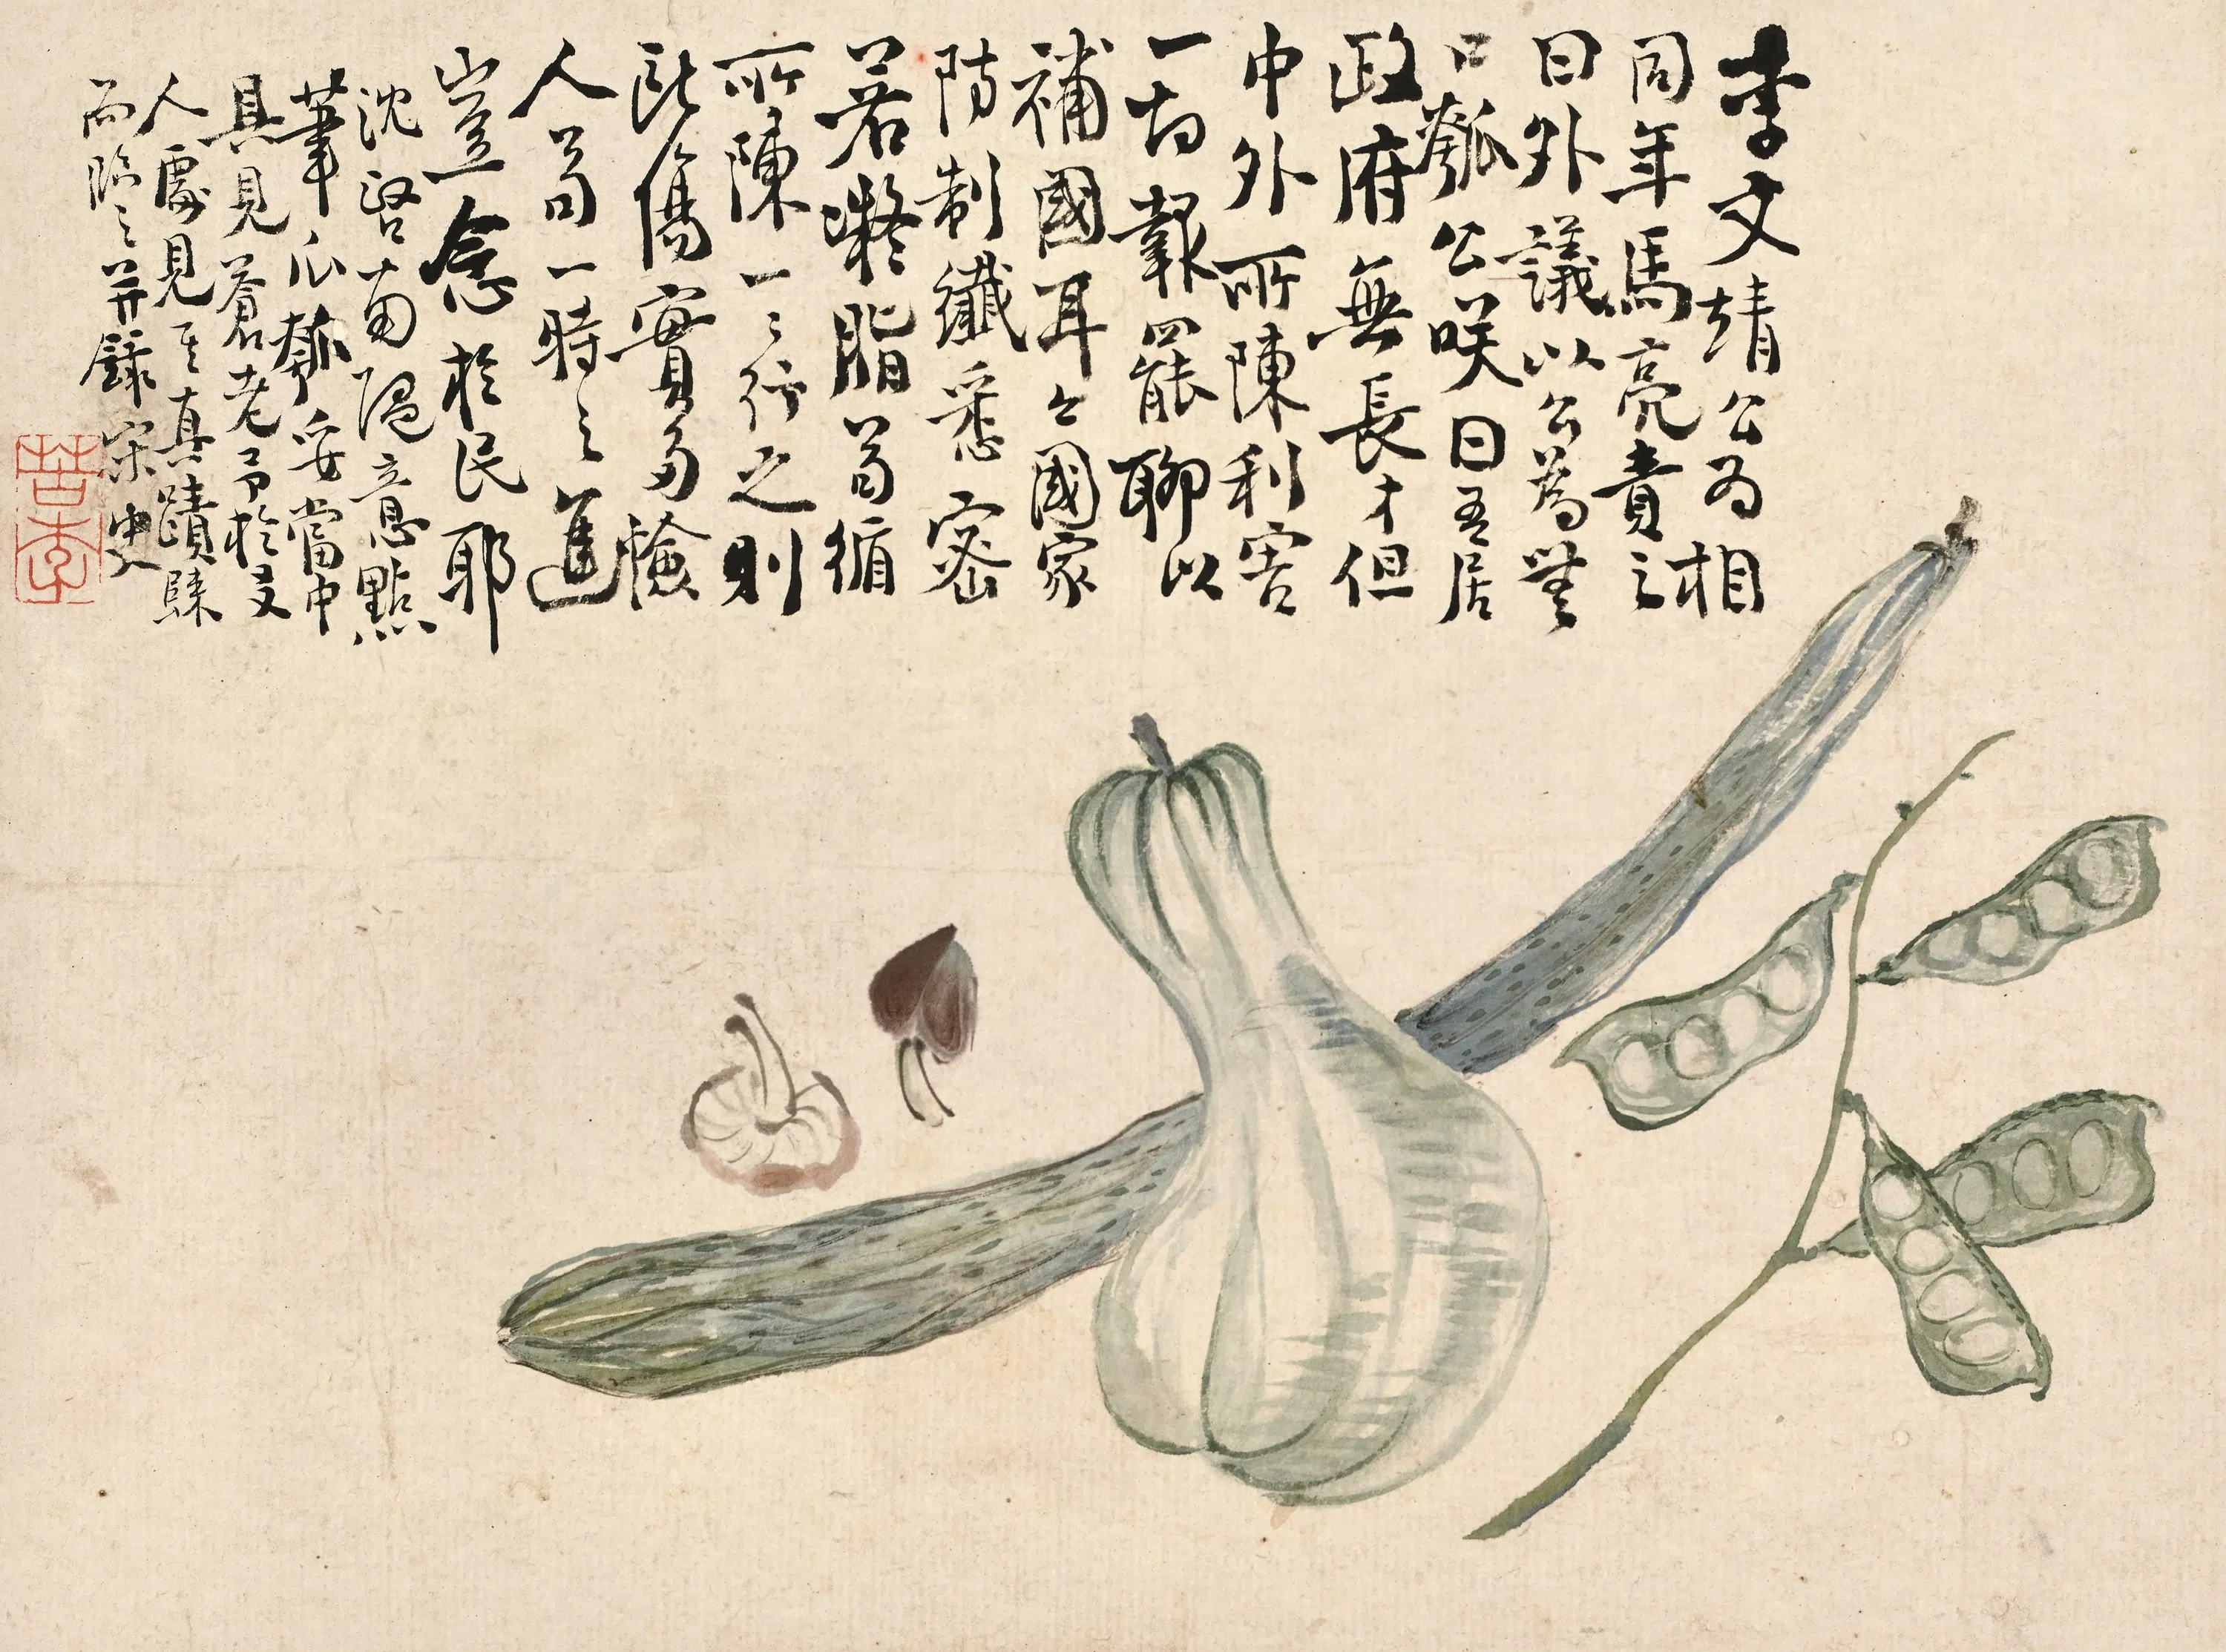 李文靖公为相
同年馬亮責之
曰外議以公為無
口瓠公咲曰吾居
政府無長才但
中外所陳利害
一切報罷聊以
補國耳今國家
防制纖悉密
若凝脂苟循
所陳一一行之則
所傷實多憸
人苟一時之進
豈念於民耶
沈啓南隨意點
筆瓜瓠妥當中
具見蒼老予於友
人處見其真蹟歸
而臨之并錄宋史
苦李